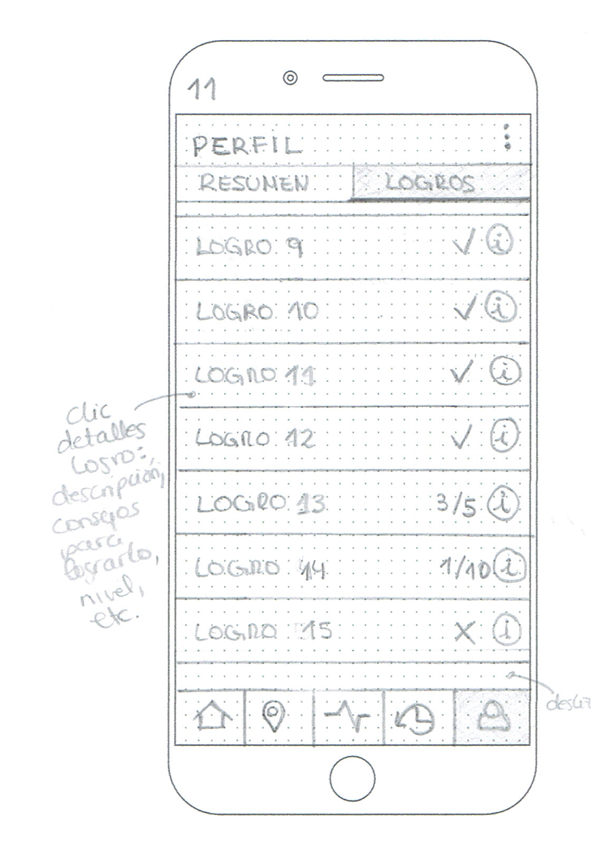 11
PERFIL
RESUMEN LOGROS
LOGRO 9 ✓ i
LOGRO 10 ✓ i
LOGRO 11 ✓ i
LOGRO 12 ✓ i
LOGRO 13 3/5 i
LOGRO 14 1/10 i
LOGRO 15 X i
clic
detalles
logro:
descripción,
consejos
para
lograrlo,
nivel,
etc.